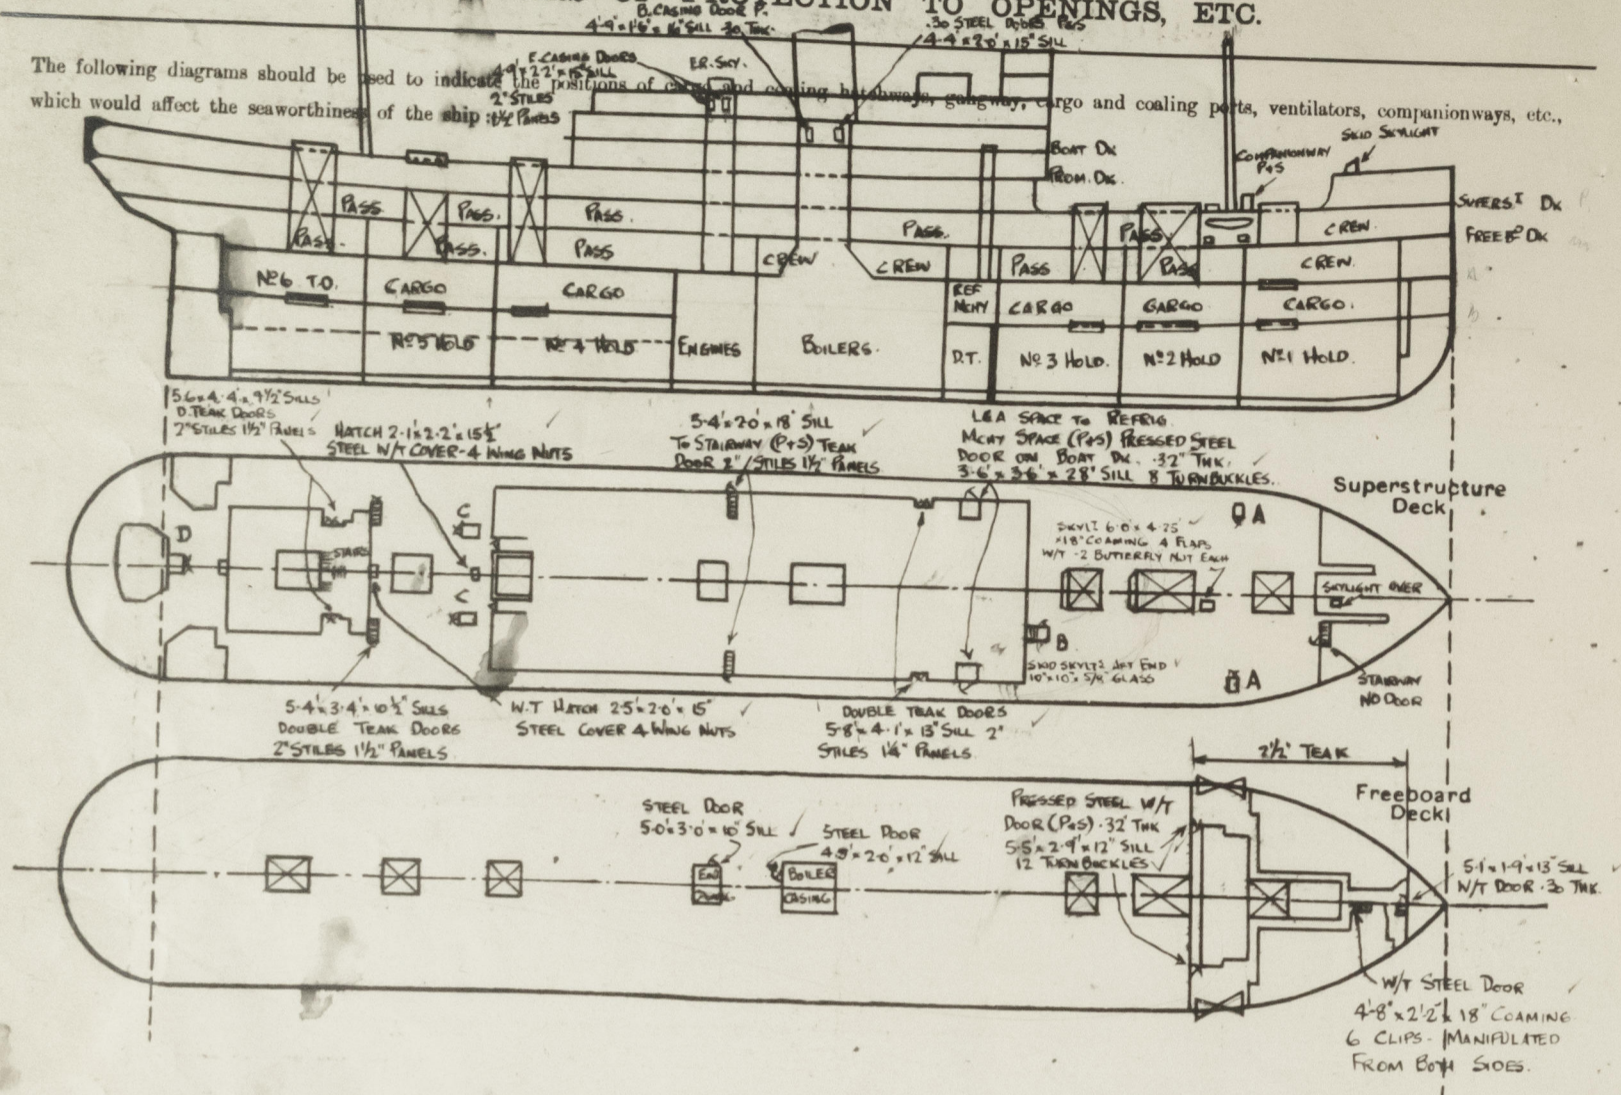 TO OPENINGS, ETC.
B. CASING DOOR P.
4'-9"x1'6"x16" SILL .30 THK.
.30 STEEL DOORS P&S
4'-4"x2'0"x15" SILL
The following diagrams should be used to indicate the positions of cargo and coaling hatchways, gangway, cargo and coaling ports, ventilators, companionways, etc.,
which would affect the seaworthiness of the ship:
E. CASING DOORS
4'-9"x2'2"x15" SILL
2" STILES
1½" PANELS
ER. SKY.
SKID SKYLIGHT
COMPANIONWAY
P+S
BOAT DK
PROM. DK.
SUPERS. DK
FREEBD DK
PASS
PASS.
PASS.
PASS.
PASS.
PASS.
PASS
PASS
PASS
PASS
CREW
CREW
CREW.
CREW.
No 6 T.D.
CARGO
CARGO
REF
MCHY
CARGO
CARGO
CARGO.
No 5 HOLD
No 4 HOLD
ENGINES
BOILERS.
D.T.
No 3 HOLD.
No 2 HOLD
No 1 HOLD.
5.6x4.4x9½" SILLS
D. TEAK DOORS
2" STILES 1½" PANELS
HATCH 2-1x2-2x15½"
STEEL W/T COVER-4 WING NUTS
5-4'x2'0"x18" SILL
TO STAIRWAY (P+S) TEAK
DOOR 2" STILES 1½" PANELS.
L&A SPACE TO REFRIG.
MCHY SPACE (P+S) PRESSED STEEL
DOOR ON BOAT DK. .32" THK.
3-6'x3-6'x28" SILL 8 TURNBUCKLES.
Superstructure
Deck
SKYLT 6-0"x4-25
x18" COAMING 4 FLAPS
W/T -2 BUTTERFLY NUT EACH
A
D
C
STAIRS
C
SKYLIGHT OVER
B
A
SKID SKYLTS AFT END
10"x10"x5/8" GLASS
STAIRWAY
NO DOOR
5-4'x3-4'x10½" SILLS
DOUBLE TEAK DOORS
2" STILES 1½" PANELS.
W.T HATCH 2-5'x2-0'x15"
STEEL COVER 4 WING NUTS
DOUBLE TEAK DOORS
5-8'x4-1'x13" SILL 2"
STILES 1¼" PANELS.
2½" TEAK
Freeboard
Deck
STEEL DOOR
5-0'x3-0'x10" SILL
STEEL DOOR
4-9'x2-0'x12" SILL
PRESSED STEEL W/T
DOOR (P+S) .32" THK
5-5'x2-9'x12" SILL
12 TURNBUCKLES
BOILER
CASING
5-1'x1-9'x13" SILL
W/T DOOR .30 THK.
W/T STEEL DOOR
4'-8"x2'-2"x18" COAMING
6 CLIPS- MANIPULATED
FROM BOTH SIDES.